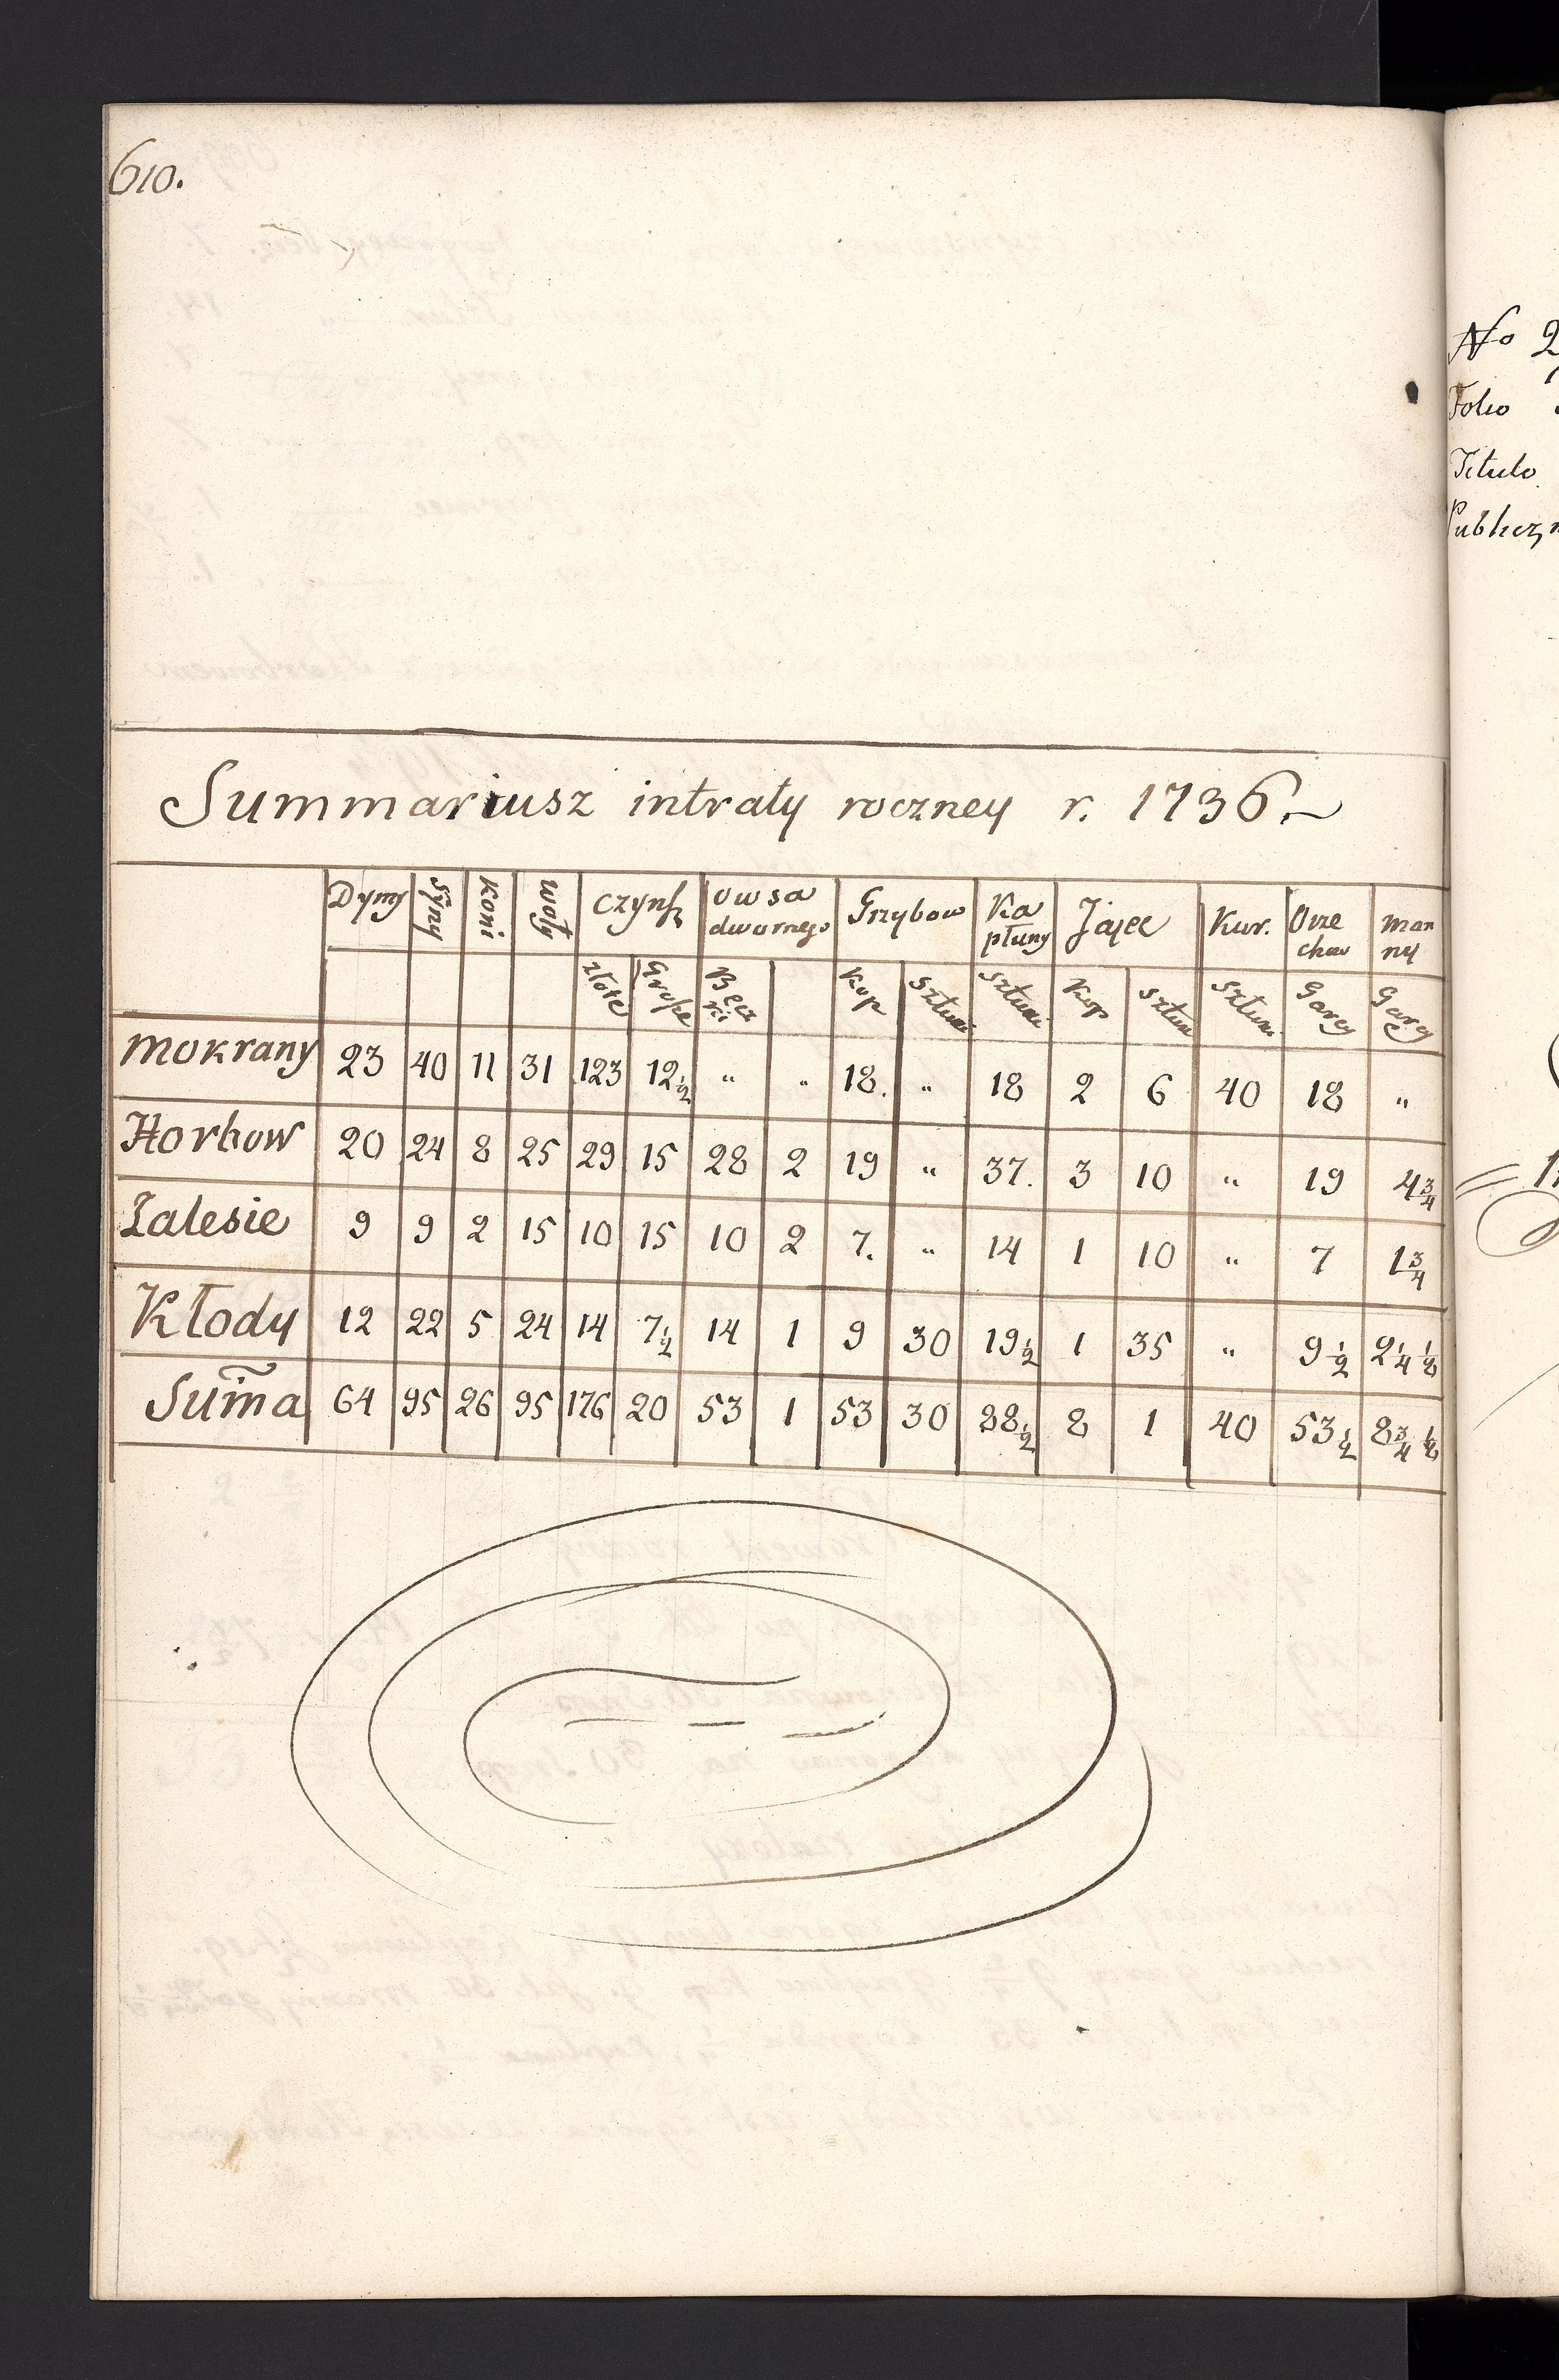 610.
Summariusz intraty roczney r. 1736.
Dymy Syny Koni woły czynsz owsa dwornego Grzybow Kapłuny Jajec Kur. Orzechow manny
złote Grosze Beczki Kop Sztuki Sztuki Kop Sztuki Sztuki Garcy Garcy
Mokrany 23 40 11 31 123 12 1/2 " " 18. " 18 2 6 40 18 "
Horbow 20 24 8 25 29 15 28 2 19 " 37. 3 10 " 19 4 3/4
Zalesie 9 9 2 15 10 15 10 2 7. " 14 1 10 " 7 1 3/4
Kłody 12 22 5 24 14 7 1/2 14 1 9 30 19 1/2 1 35 " 9 1/2 2 1/4 1/8
Suma 64 95 26 95 176 20 53 1 53 30 88 1/2 8 1 40 53 1/2 8 3/4 1/8
No 2
Folio
Titulo
Publiczn